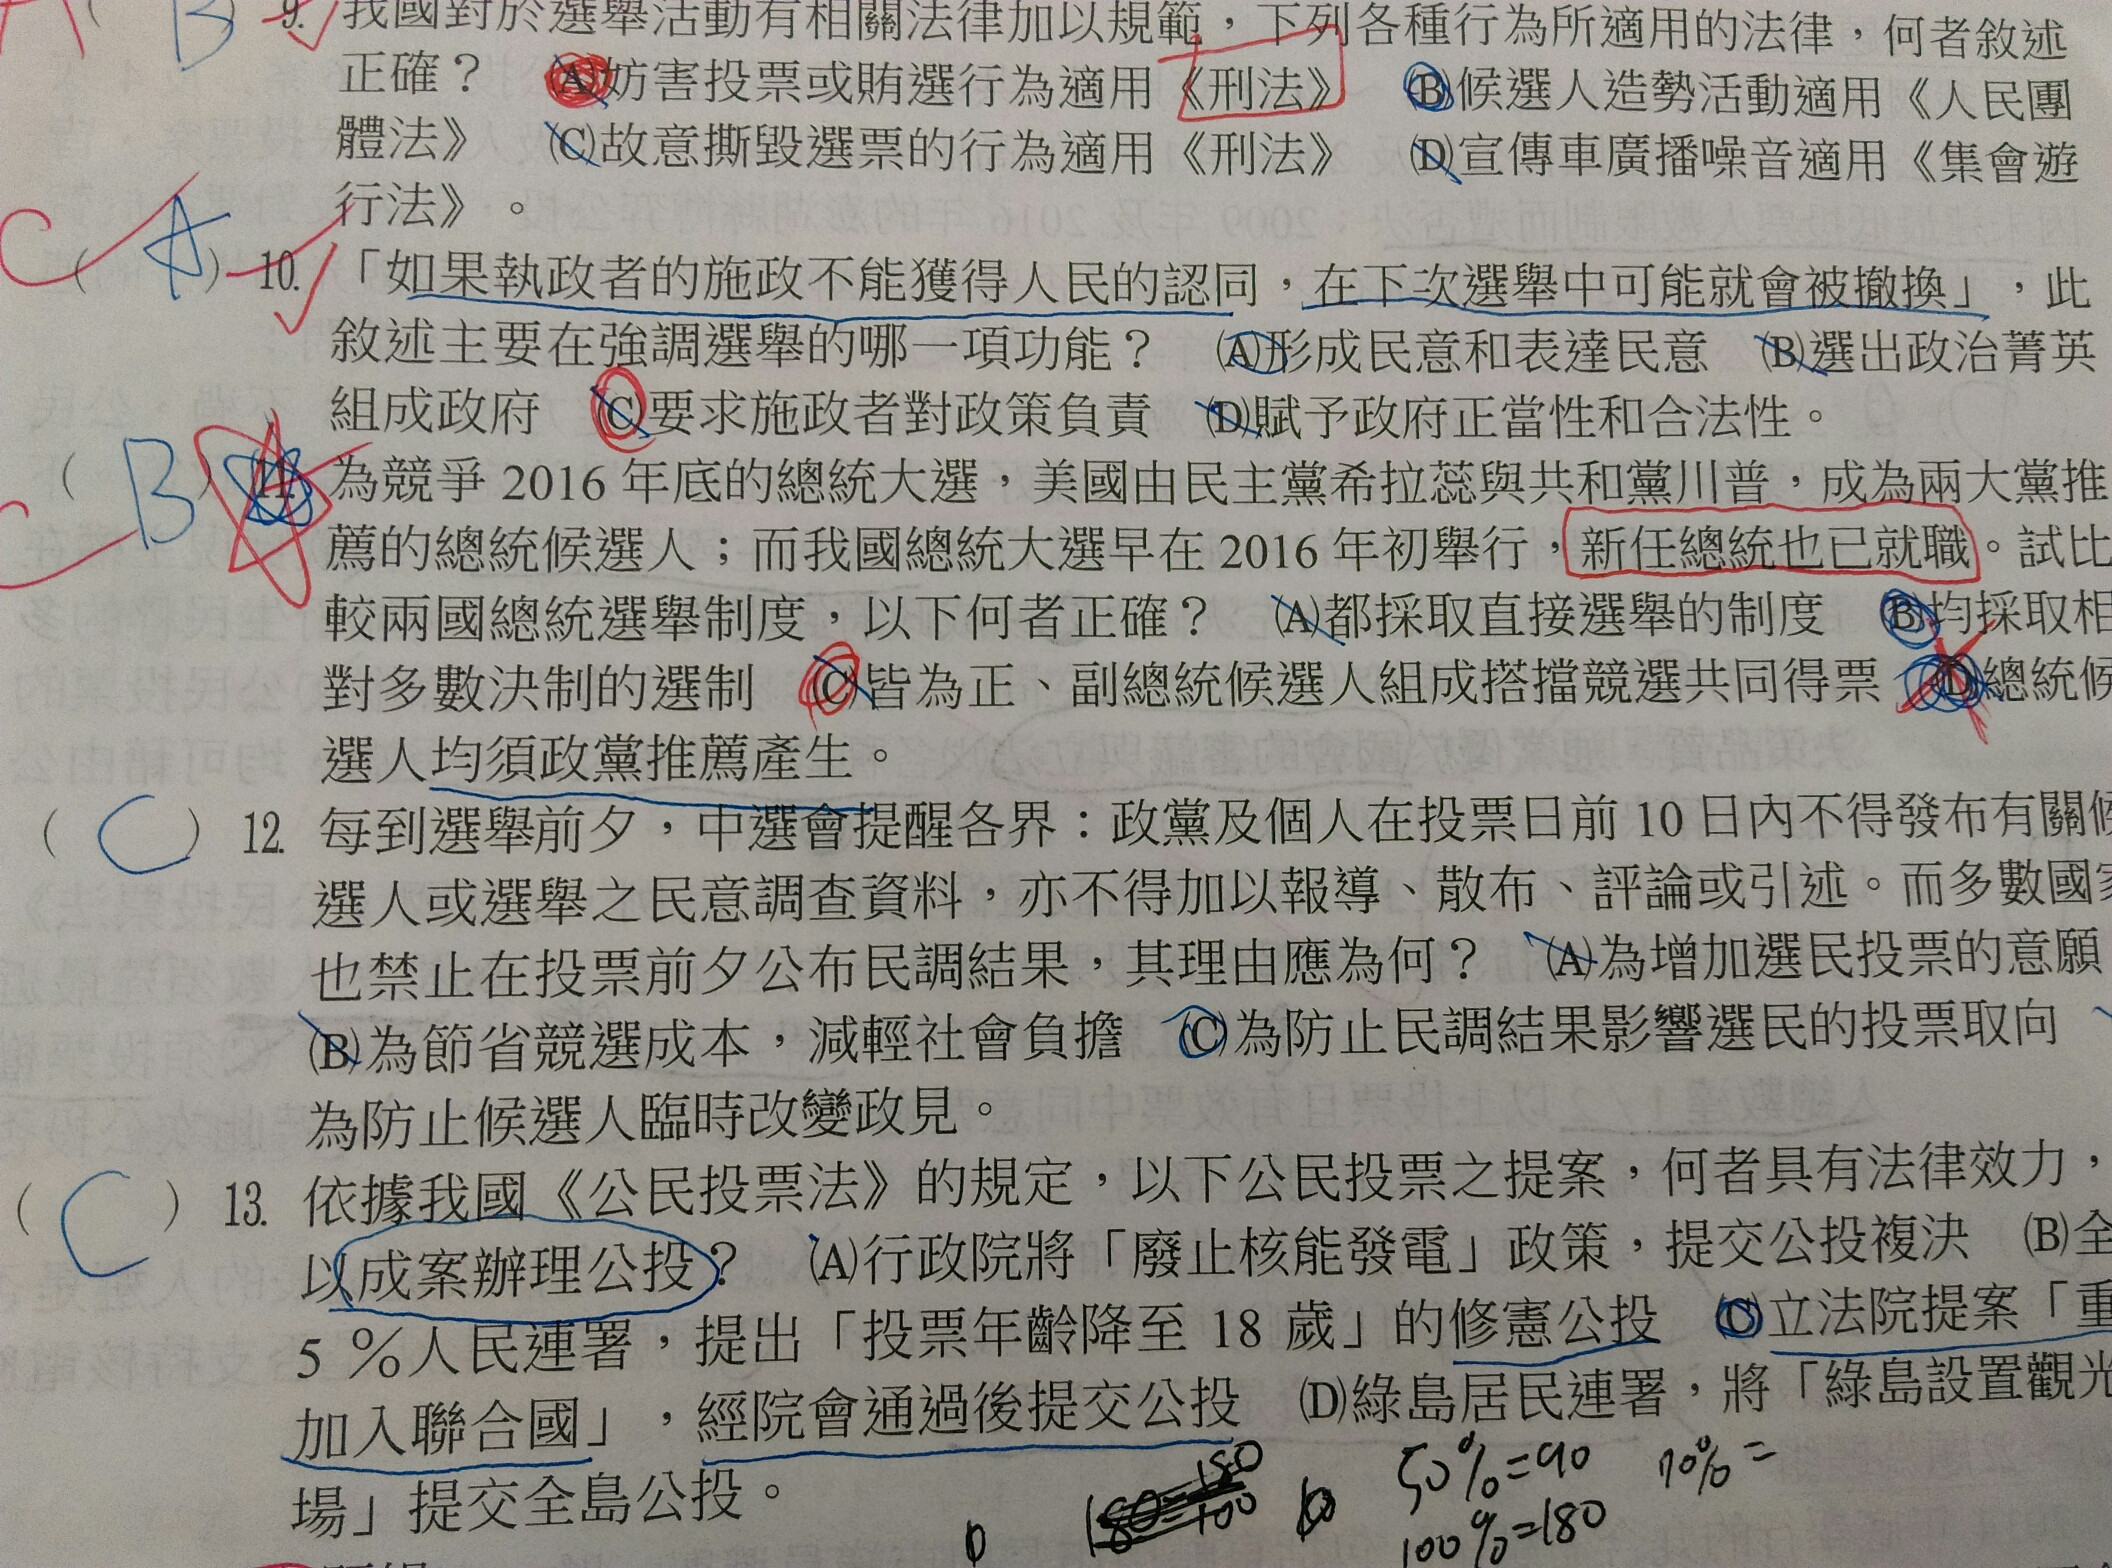 A B 9. 我國對於選舉活動有相關法律加以規範，下列各種行為所適用的法律，何者敘述
正確？ (A)妨害投票或賄選行為適用《刑法》 (B)候選人造勢活動適用《人民團
體法》 (C)故意撕毀選票的行為適用《刑法》 (D)宣傳車廣播噪音適用《集會遊
行法》。
C ( A ) 10. 「如果執政者的施政不能獲得人民的認同，在下次選舉中可能就會被撤換」，此
敘述主要在強調選舉的哪一項功能？ (A)形成民意和表達民意 (B)選出政治菁英
組成政府 (C)要求施政者對政策負責 (D)賦予政府正當性和合法性。
C ( B ) 11. 為競爭 2016 年底的總統大選，美國由民主黨希拉蕊與共和黨川普，成為兩大黨推
薦的總統候選人；而我國總統大選早在 2016 年初舉行，新任總統也已就職。試比
較兩國總統選舉制度，以下何者正確？ (A)都採取直接選舉的制度 (B)均採取相
對多數決制的選制 (C)皆為正、副總統候選人組成搭擋競選共同得票 (D)總統候
選人均須政黨推薦產生。
( C ) 12. 每到選舉前夕，中選會提醒各界：政黨及個人在投票日前 10 日內不得發布有關候
選人或選舉之民意調查資料，亦不得加以報導、散布、評論或引述。而多數國家
也禁止在投票前夕公布民調結果，其理由應為何？ (A)為增加選民投票的意願
(B)為節省競選成本，減輕社會負擔 (C)為防止民調結果影響選民的投票取向
為防止候選人臨時改變政見。
( C ) 13. 依據我國《公民投票法》的規定，以下公民投票之提案，何者具有法律效力，
以成案辦理公投？ (A)行政院將「廢止核能發電」政策，提交公投複決 (B)全
5 %人民連署，提出「投票年齡降至 18 歲」的修憲公投 (C)立法院提案「重
加入聯合國」，經院會通過後提交公投 (D)綠島居民連署，將「綠島設置觀光
場」提交全島公投。
50%=90
100%=180